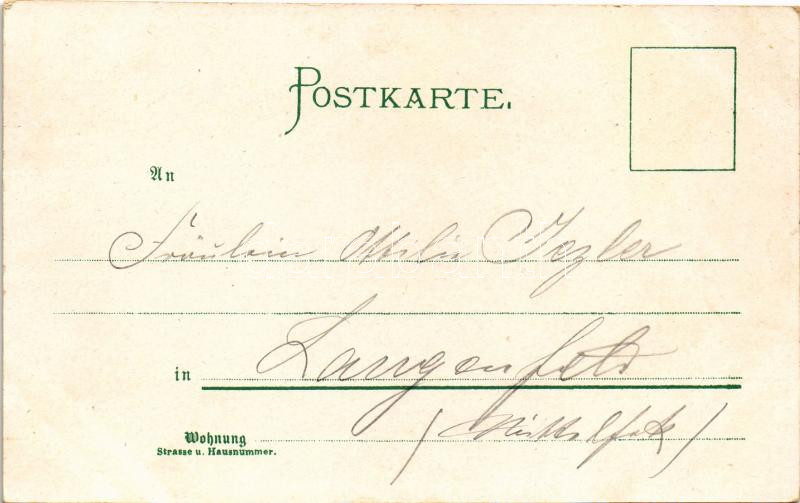 POSTKARTE.
An
Fräulein Ottilie
in Langenfeld
Wohnung
Strasse u. Hausnummer.